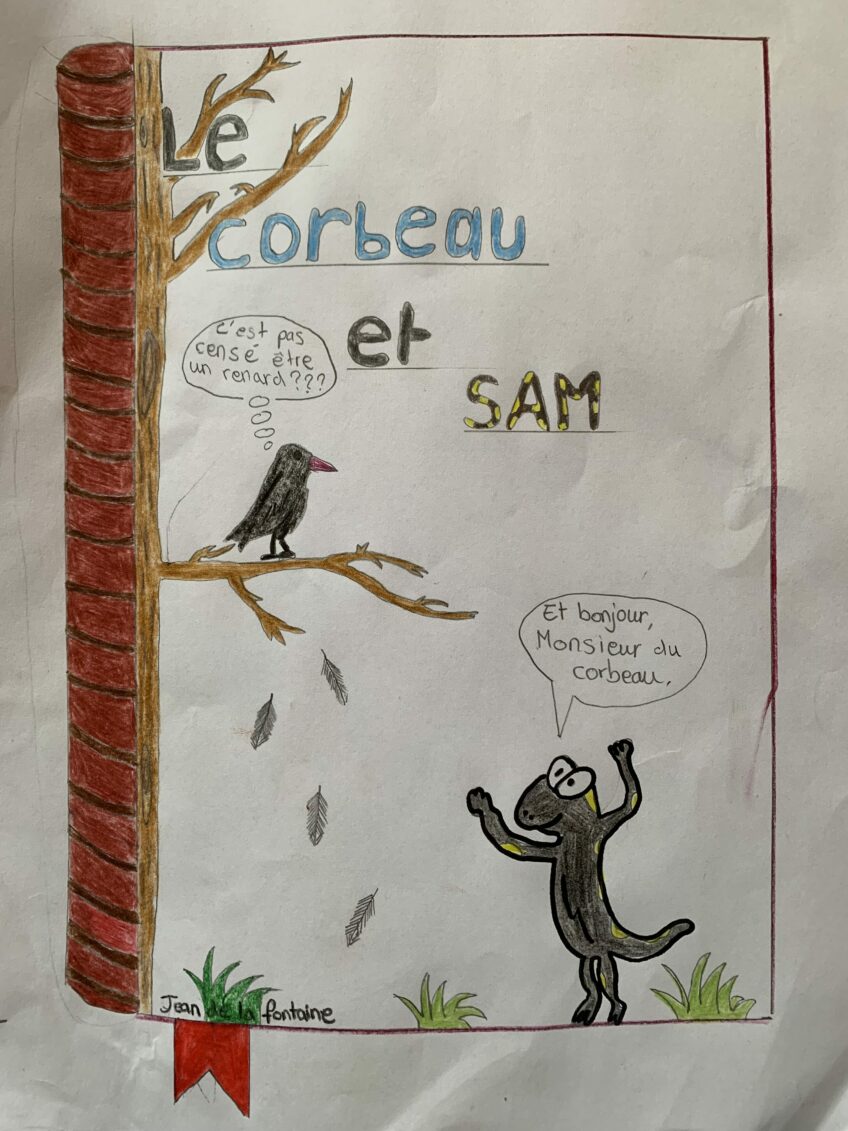 Le
corbeau
et
SAM
c'est pas
censé être
un renard???
Et bonjour,
Monsieur du
corbeau,
Jean de la fontaine